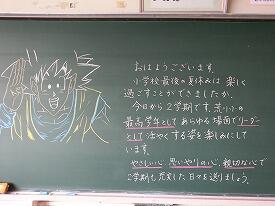 おはようございます。
小学校最後の夏休みは楽しく
過ごすことができましたか。
今日から2学期です。荒小の
最高学年としてあらゆる場面でリーダー
として活やくする姿を楽しみにして
います。
やさしい心、思いやりの心、親切な心で
2学期も充実した日々を送りましょう。